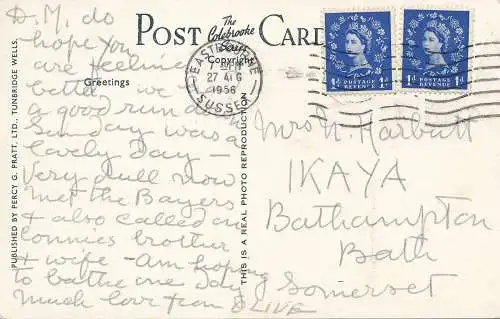 POST CARD
The
Colebrooke
Series
Copyright
Greetings
EASTBOURNE
27 AUG
1956
SUSSEX
1d POSTAGE REVENUE 1d
1d POSTAGE REVENUE 1d
D.M. do
hope you
are feeling
better we had
a good run down
Sunday was a
lovely Day -
Very dull now
met the Bayers
+ also called on
Connies brother
+ wife - Am hoping
to bathe one Day
Much love from OLIVE
Mrs N. Harbutt
IKAYA
Bathampton
Bath
Somerset
PUBLISHED BY PERCY G. PRATT, LTD., TUNBRIDGE WELLS.
THIS IS A REAL PHOTO REPRODUCTION